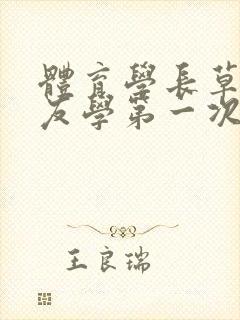 體育學長草
友學第一次
王良瑞